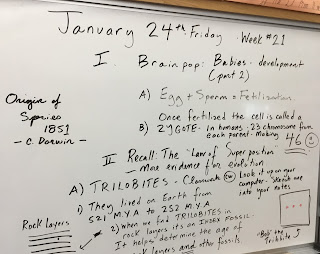 January 24th Friday · Week #21
I. Brainpop: Babies · development
(part 2)
A) Egg + Sperm = Fertilization.
Once fertilized the cell is called a
B) ZYGOTE · In humans · 23 chromosome from
each parent. Making 46
Origin of
Species
1851
- C. Darwin -
II Recall: The "Law of Super position"
- More evidence for evolution
A) TRILOBITES - Classwork CW
Look it up on your
computer. Sketch one
into your notes
1) They lived on Earth from
521 M.Y.A to 252 M.Y.A
2) When we find TRILOBITES in
rock layers its an INDEX FOSSIL.
It helps determine the age of
rock layers and other fossils.
Rock layers
"Bob" the
Trilobite